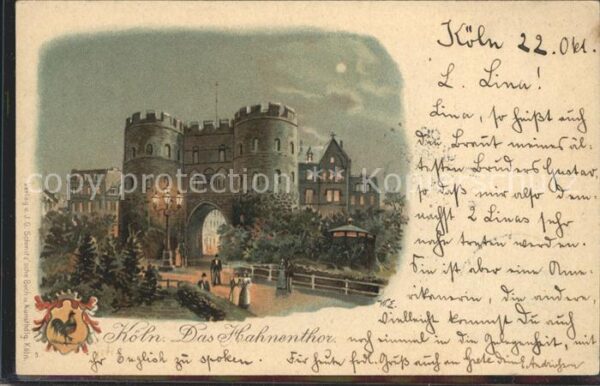 Köln 22. Okt.
L. Lina!
Lina, so heißt auch
die Braut meines äl-
testen Bruders Gustav,
so daß mir also dem-
nächst 2 Linas sehr
nahe treten werden.
Sie ist aber eine Ame-
rikanerin, die andere,
vielleicht kommst Du auch
noch einmal in die Gelegenheit, mit
ihr Englisch zu sprechen. Für heute frdl. Gruß auch an Grete
Köln. Das Hahnenthor.
copyright protected
copyright protected